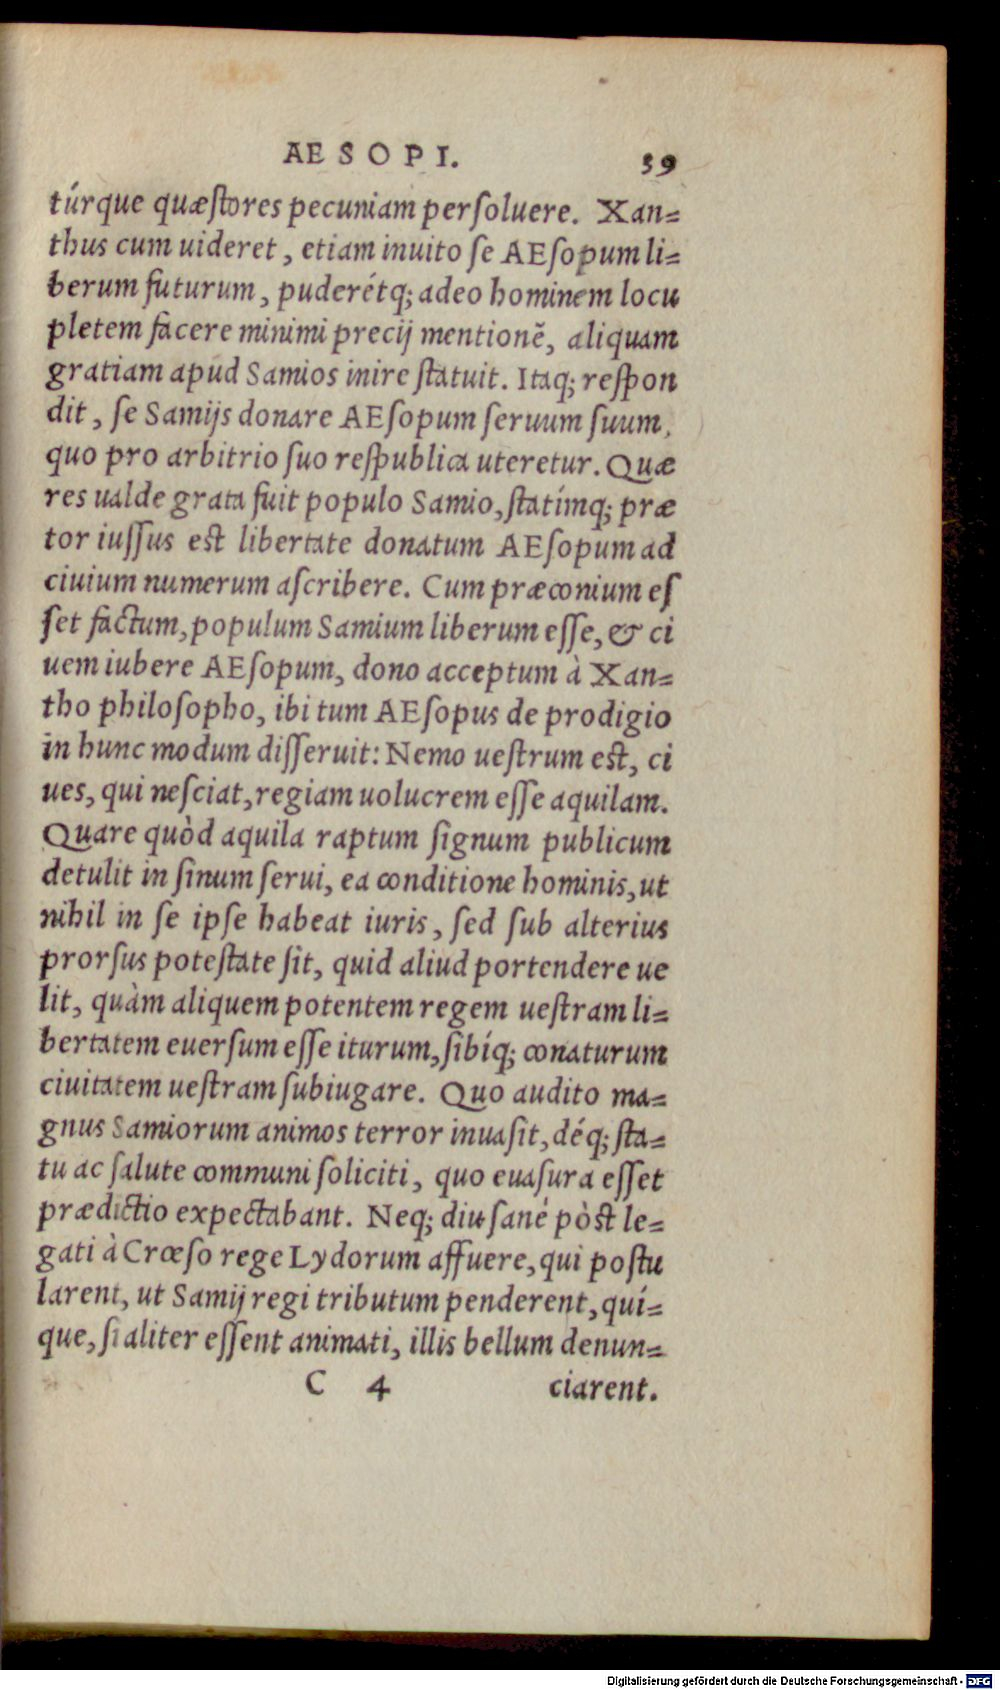 AESOPI. 39
túrque quæſtores pecuniam perſoluere. Xan=
thus cum uideret, etiam inuito ſe AEſopum li=
berum futurum, puderétq; adeo hominem locu
pletem facere minimi precij mentionẽ, aliquam
gratiam apud Samios inire ſtatuit. Itaq; reſpon
dit, ſe Samijs donare AEſopum ſeruum ſuum,
quo pro arbitrio ſuo reſpublica uteretur. Quæ
res ualde grata fuit populo Samio, ſtatímq; præ
tor iuſſus est libertate donatum AEſopum ad
ciuium numerum aſcribere. Cum præconium eſ
ſet factum, populum Samium liberum eſſe, & ci
uem iubere AEſopum, dono acceptum à Xan=
tho philoſopho, ibi tum AEſopus de prodigio
in hunc modum diſſeruit: Nemo ueſtrum est, ci
ues, qui neſciat, regiam uolucrem eſſe aquilam.
Quare quòd aquila raptum ſignum publicum
detulit in ſinum ſerui, ea conditione hominis, ut
nihil in ſe ipſe habeat iuris, ſed ſub alterius
prorſus poteſtate ſit, quid aliud portendere ue
lit, quàm aliquem potentem regem ueſtram li=
bertatem euerſum eſſe iturum, ſibíq; conaturum
ciuitatem ueſtram ſubiugare. Quo audito ma=
gnus Samiorum animos terror inuaſit, déq; ſta=
tu ac ſalute communi ſoliciti, quo euaſura eſſet
prædictio expectabant. Neq; diu ſanè pòst le=
gati à Crœſo rege Lydorum affuere, qui poſtu
larent, ut Samij regi tributum penderent, quí=
que, ſi aliter eſſent animati, illis bellum denun=
C 4 ciarent.
Digitalisierung gefördert durch die Deutsche Forschungsgemeinschaft - DFG